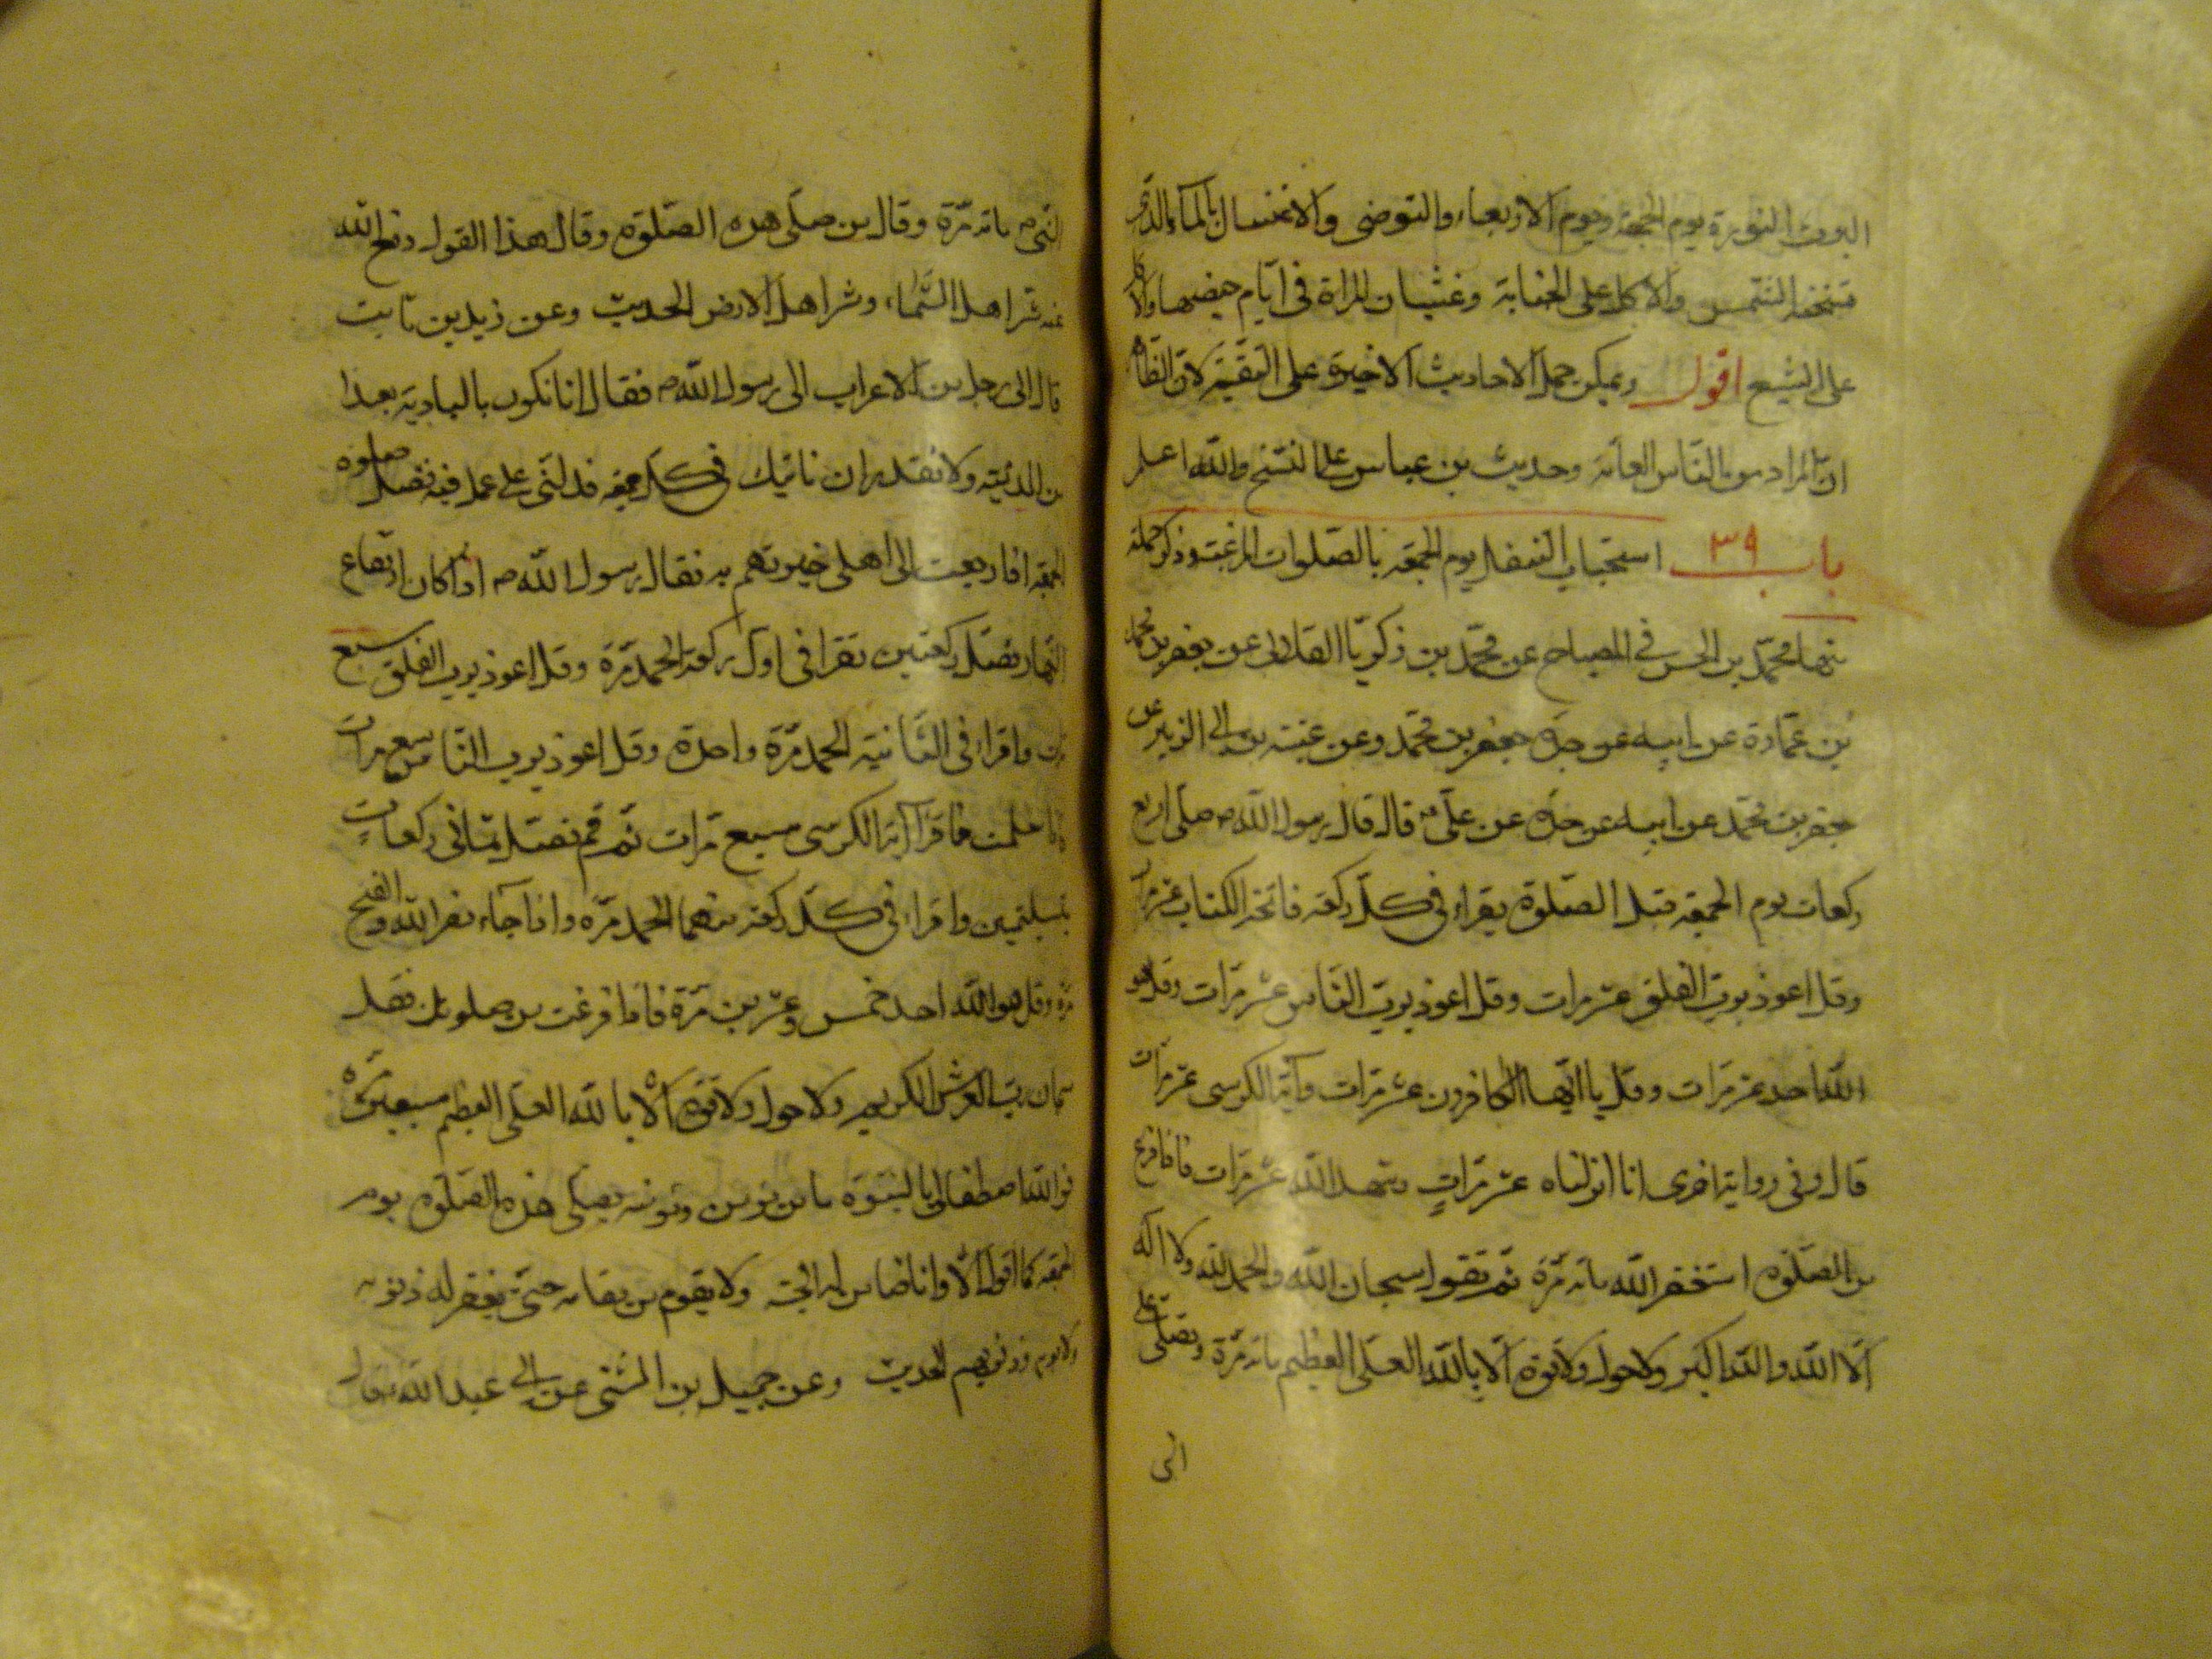 البرص النورة يوم الجمعة ويوم الاربعاء والتوضى والاغتسال بالماء الذى
تسخنه الشمس والاكل على الجنابة وغشيان المراة فى ايّام حيضها والاكل
على الشبع اقول ويمكن حمل الاحاديث الاخيرة على التقيّة لان الظاهر
ان المراد من النّاس العامّة وحديث بن عباس على النسخ والله اعلم
باب ٣٩ استحباب التنفل يوم الجمعة بالصّلوات المرغبة وذكر جملة
منها محمّد بن الحسن فى المصباح عن محمّد بن زكريّا الغلابى عن جعفر بن محمد
بن عمّارة عن ابيه عن جعفر بن محمّد وعن عتبة بن ابى الزبير عن
جعفر بن محمّد عن ابيه عن جدّه عن علىّ ع قال قال رسول الله ص من صلّى اربع
ركعات يوم الجمعة قبل الصّلوة يقراء فى كلّ ركعة فاتحة الكتاب عشر مرات
وقل اعوذ بربّ الفلق عشر مرات وقل اعوذ بربّ النّاس عشر مرات وقل هو
الله احد عشر مرّات وقل يا ايّها الكافرون عشر مرّات وآية الكرسى عشر مرّات
قال وفى رواية اخرى انا انزلناه عشر مرّاتٍ وشهد الله عشر مرّات فاذا فرغ
من الصّلوة استغفر الله مائة مرّة ثم يقول سبحان الله والحمد لله ولا اله
الّا الله والله اكبر ولا حول ولا قوة الّا بالله العلى العظيم مائة مرّة ويصلّى على
النبى
النّبى ص مائة مرّة وقال من صلّى هذه الصّلوة وقال هذا القول دفع الله
عنه شر اهل السّماء وشر اهل الارض الحديث وعن زيد بن ثابت
قال اتى رجل من الاعراب الى رسول الله ص فقال انا نكون بالبادية بعيدا
من المدينة ولا نقدر ان ناتيك فى كلّ جمعة فدلنى على عمل فيه فضل صلوة
الجمعة اذا رجعت الى اهلى خبرتهم به فقال رسول الله ص اذا كان ارتفاع
النّهار فصّل ركعتين تقرا فى اوّل ركعة الحمد مرّة وقل اعوذ برب الفلق سبع
مرّات واقرا فى الثّانية الحمد مرّة واحدة وقل اعوذ برب النّاس سبع مرات
فاذا سلمت فاقرا آية الكرسى سبع مرّات ثم قم فصّل ثمانى ركعاتٍ
بتسليمتين واقرا فى كلّ ركعة منها الحمد مرّة واذا جاء نصر الله والفتح
مرّة وقل هو الله احد خمس وعشرين مرّة فاذا فرغت من صلوتك فقل
سبحان ربّ العرش الكريم ولا حول ولا قوّة الّا بالله العلى العظيم سبعين مرّة
فو الله اصطفانى بالنبوة ما من مؤمن ومؤمنة يصلّى هذه الصّلوة يوم
الجمعة كما اقول الّا وانا ضامن له الجنة ولا يقوم من مقامه حتّى يغفر له ذنوبه
ولابويه ذنوبهم الحديث وعن جميل بن المثنى عن ابى عبد الله ع قال